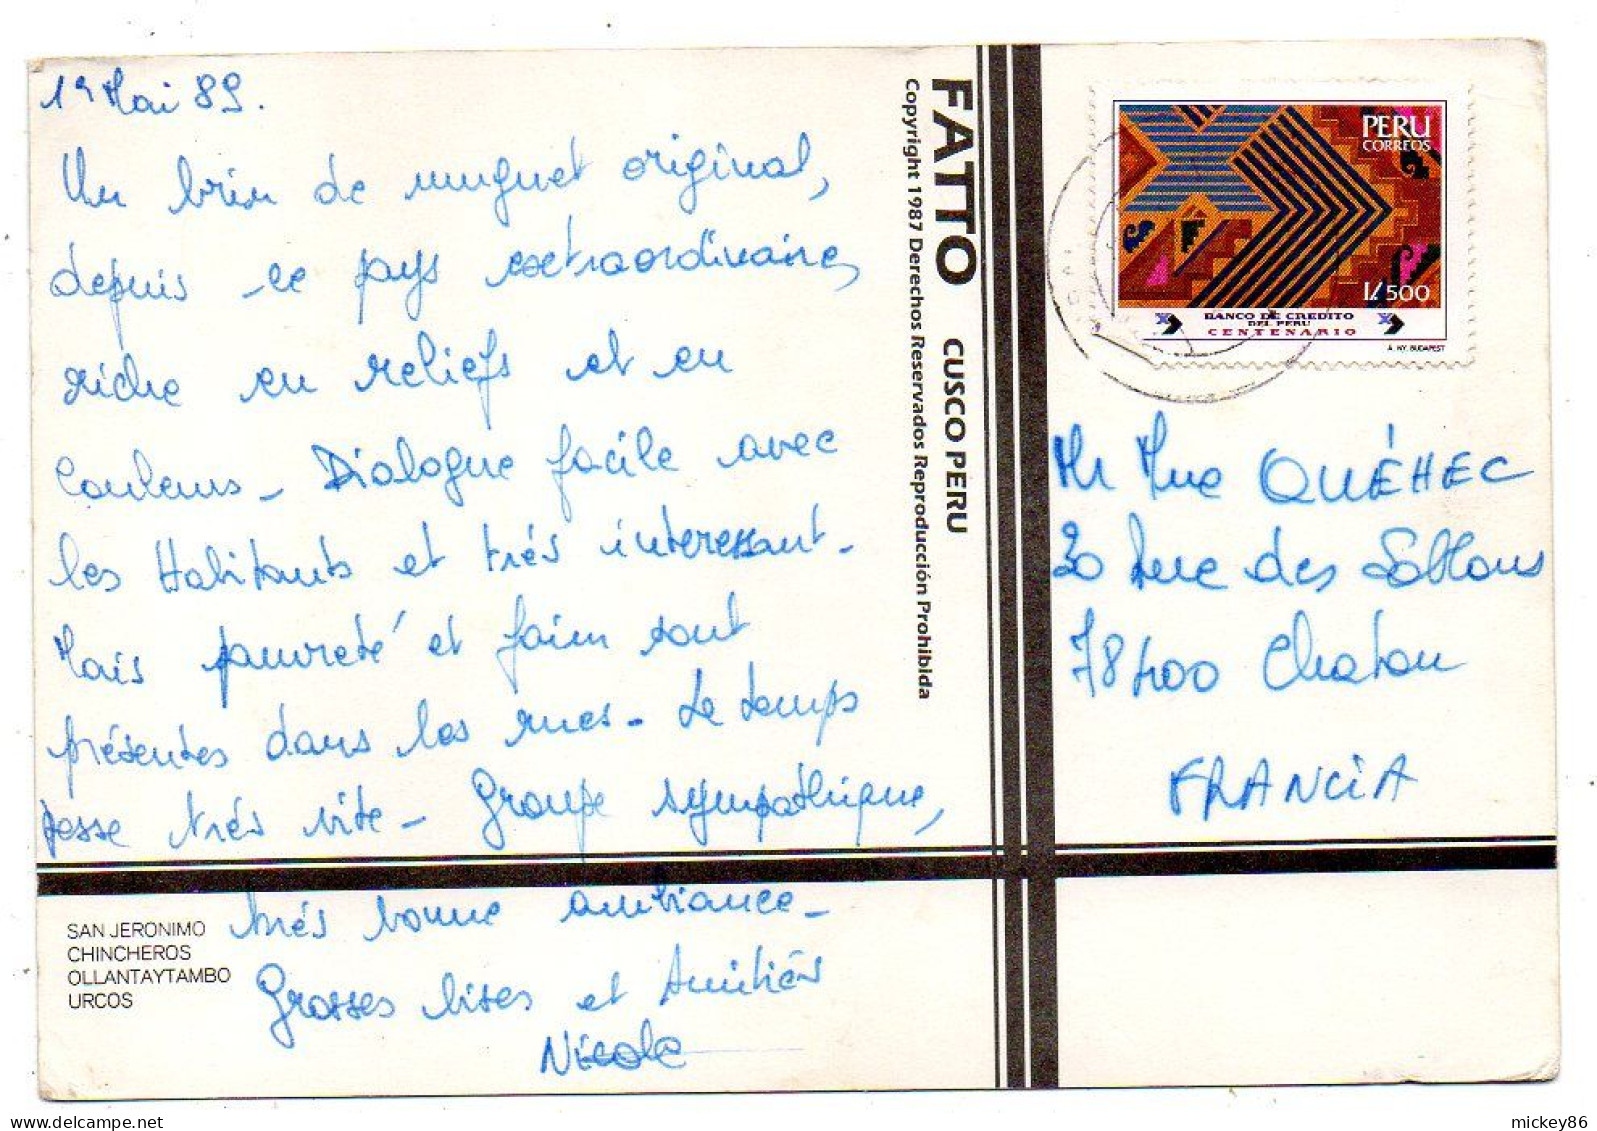 1er Mai 89.
Un brin de muguet original,
depuis ce pays extraordinaire,
riche en reliefs et en
couleurs - Dialogue facile avec
les Habitants et très interessant -
Mais pauvreté et faim sont
présentes dans les rues - Le temps
passe très vite - Groupe sympathique,
très bonne ambiance -
Grosses bises et Amitiés
Nicole
SAN JERONIMO
CHINCHEROS
OLLANTAYTAMBO
URCOS
FATTO CUSCO PERU
Copyright 1987 Derechos Reservados Reproducción Prohibida
PERU
CORREOS
I/. 500
BANCO DE CREDITO
DEL PERU
CENTENARIO
A. NY. BUDAPEST
Mr Mme QUÉHEC
20 Rue des Sablons
78400 Chatou
FRANCIA
delcampe.net
mickey86